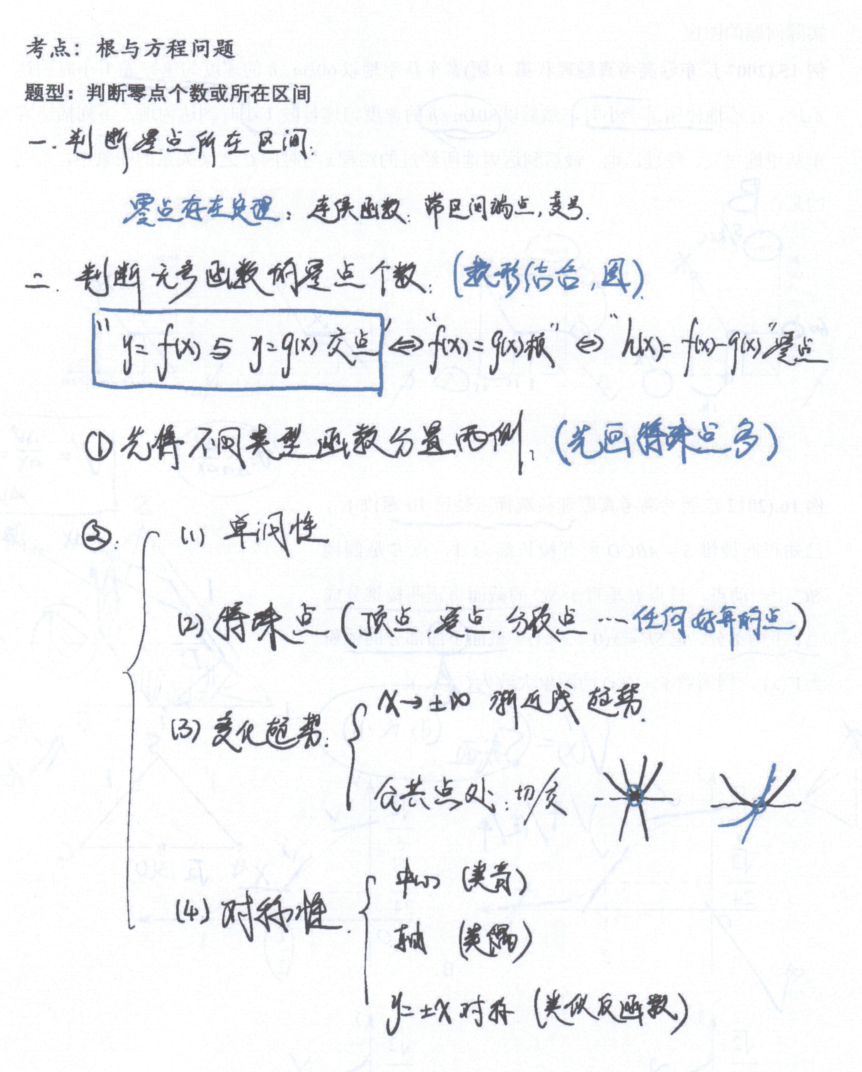 考点：根与方程问题
题型：判断零点个数或所在区间
一. 判断零点所在区间.
零点存在定理：连续函数. 带区间端点,变号.
二. 判断元素函数的零点个数. (数形结合,图)
"y=f(x)与 y=g(x)交点"⇔"f(x)=g(x)根"⇔"h(x)=f(x)-g(x)"零点
①先将不同类型函数分置两侧. (先画特殊点多)
②.
(1) 单调性
(2) 特殊点 (顶点 零点 分段点 ⋯任何好算的点)
(3) 变化趋势.
x→±∞ 渐近线趋势.
公共点处: 切/交
(4) 对称性.
中心 (类奇)
轴 (类偶)
y=±x对称 (类似反函数)